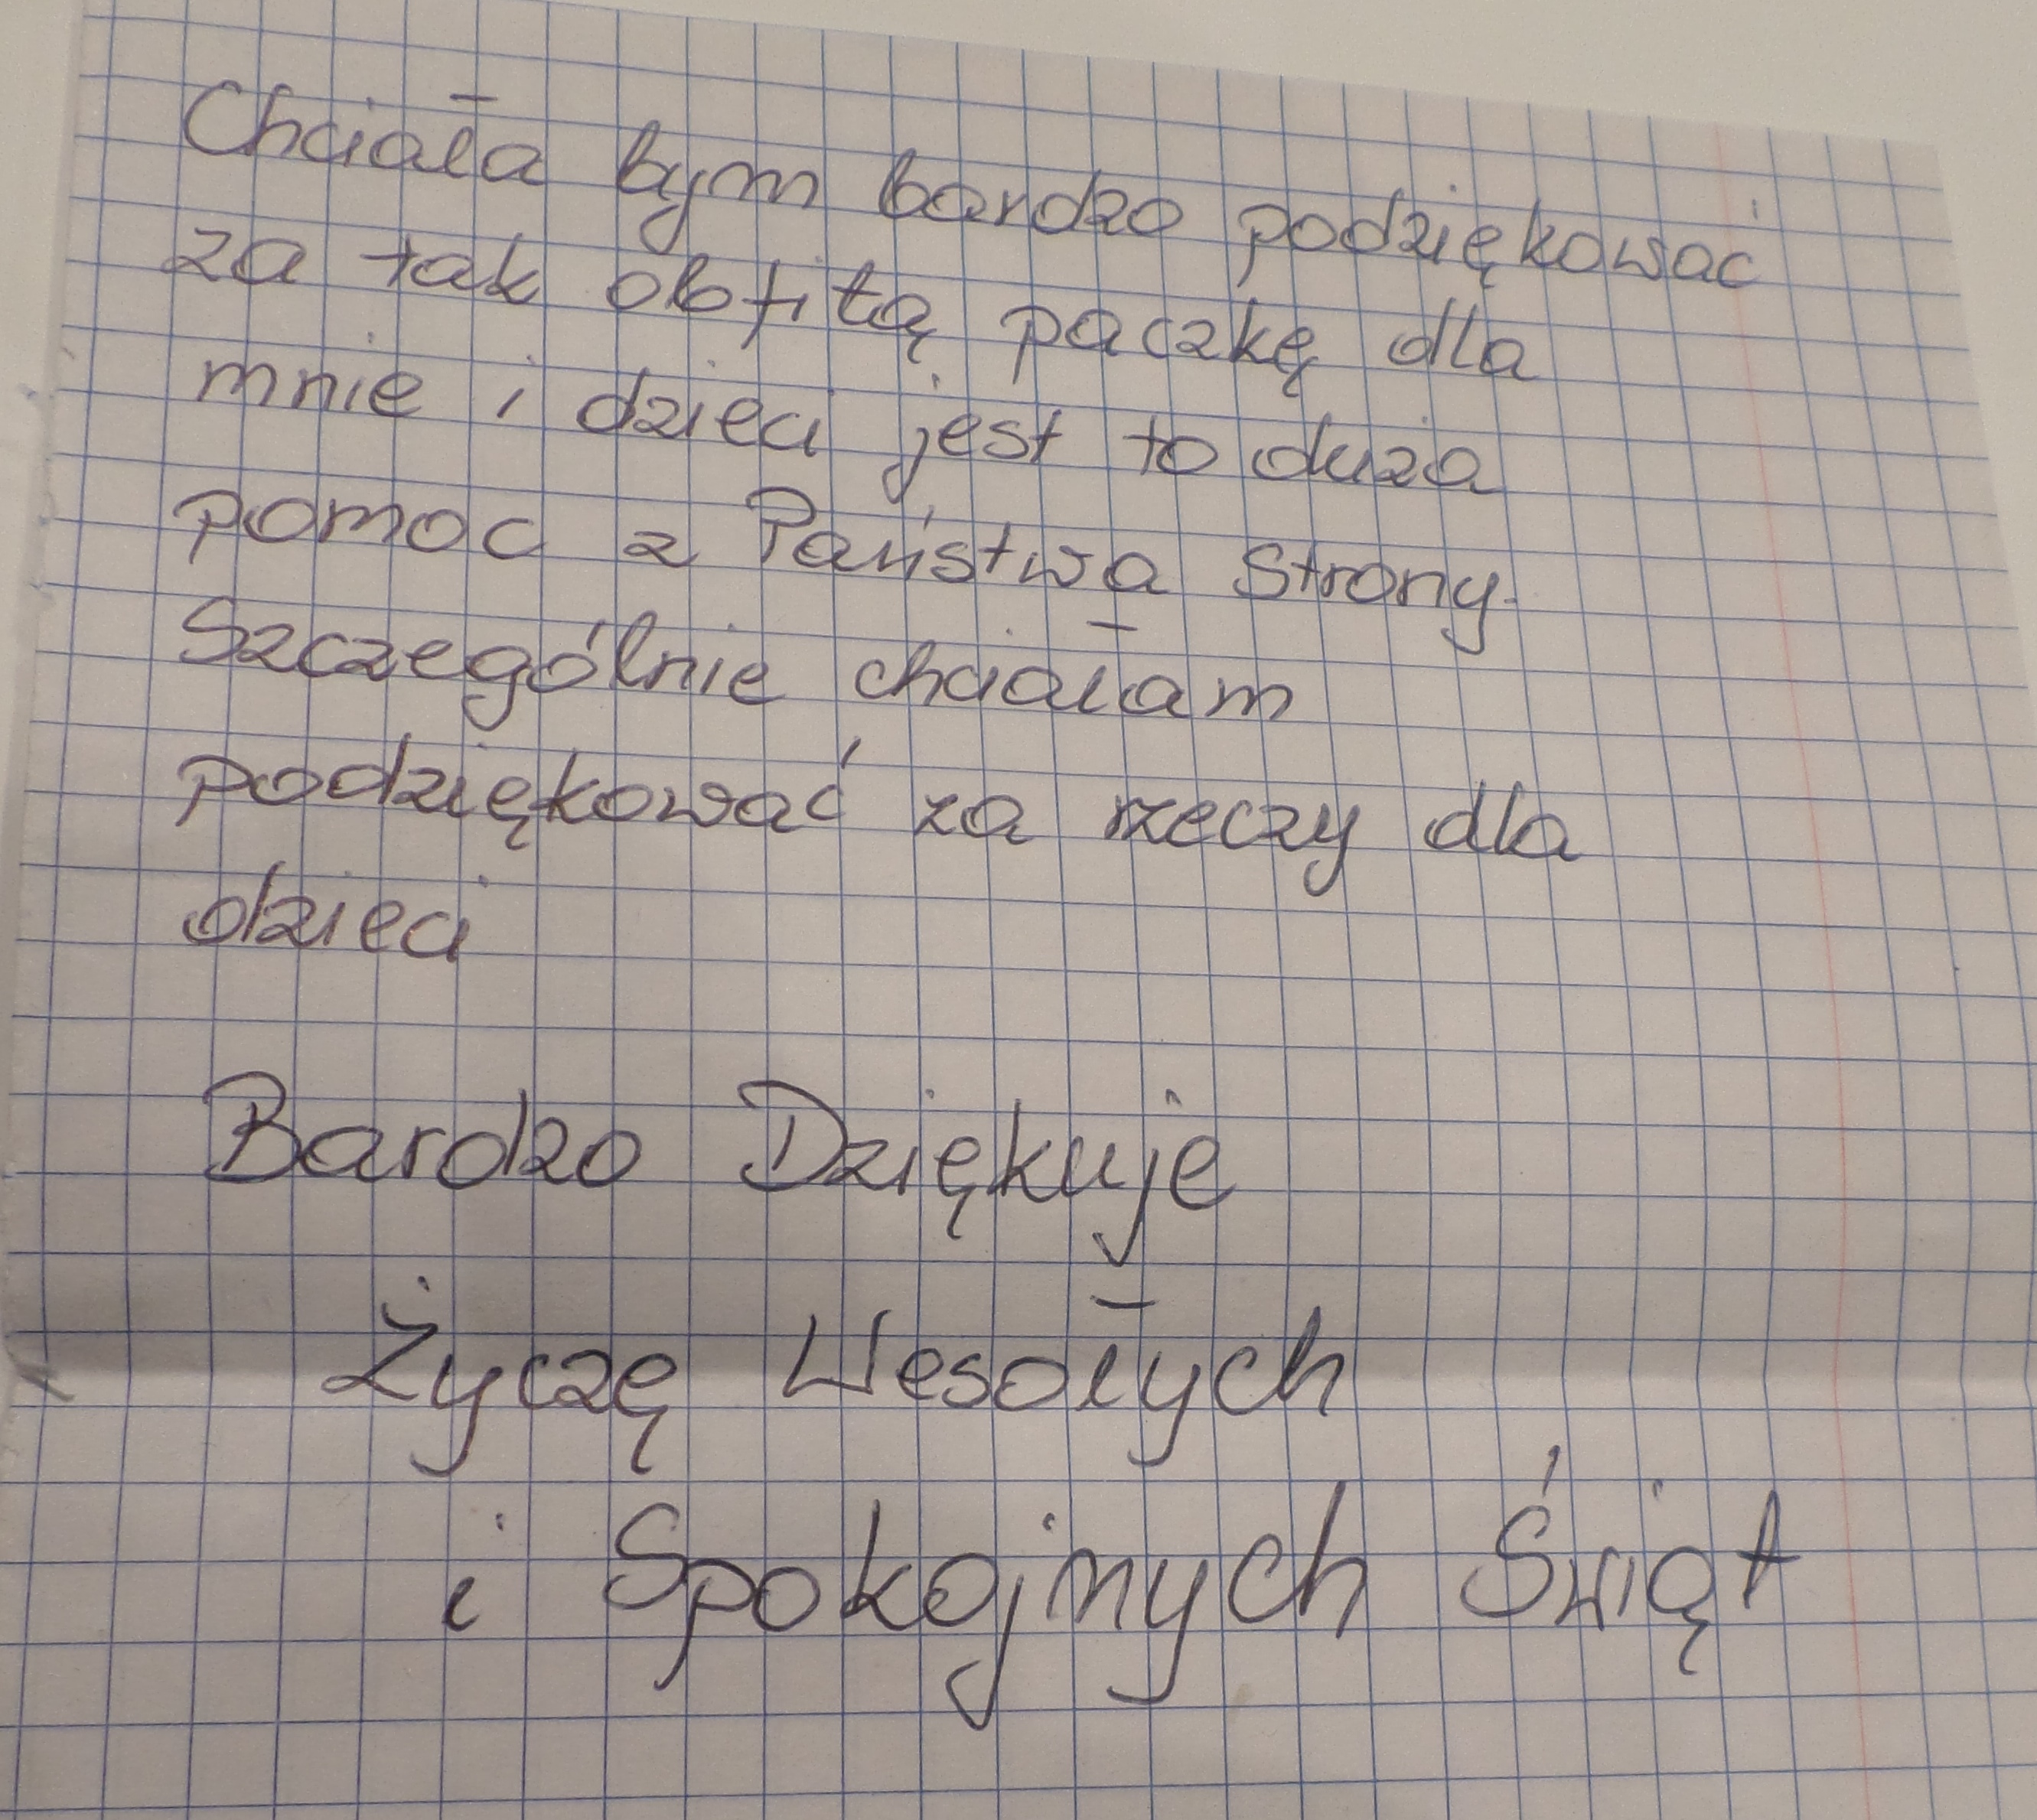 Chciała bym bardzo podziękować
za tak obfitą paczkę dla
mnie i dzieci jest to duża
pomoc z Państwa Strony.
Szczególnie chciałam
podziękować za rzeczy dla
dzieci
Bardzo Dziękuje
Życzę Wesołych
i Spokojnych Świąt